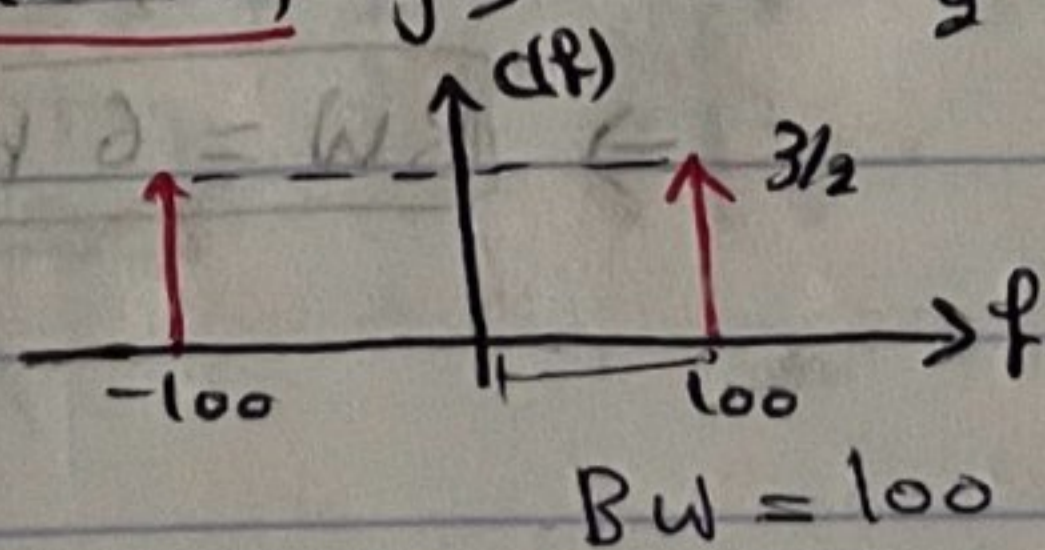 C(f)
3/2
f
-100 100
BW = 100